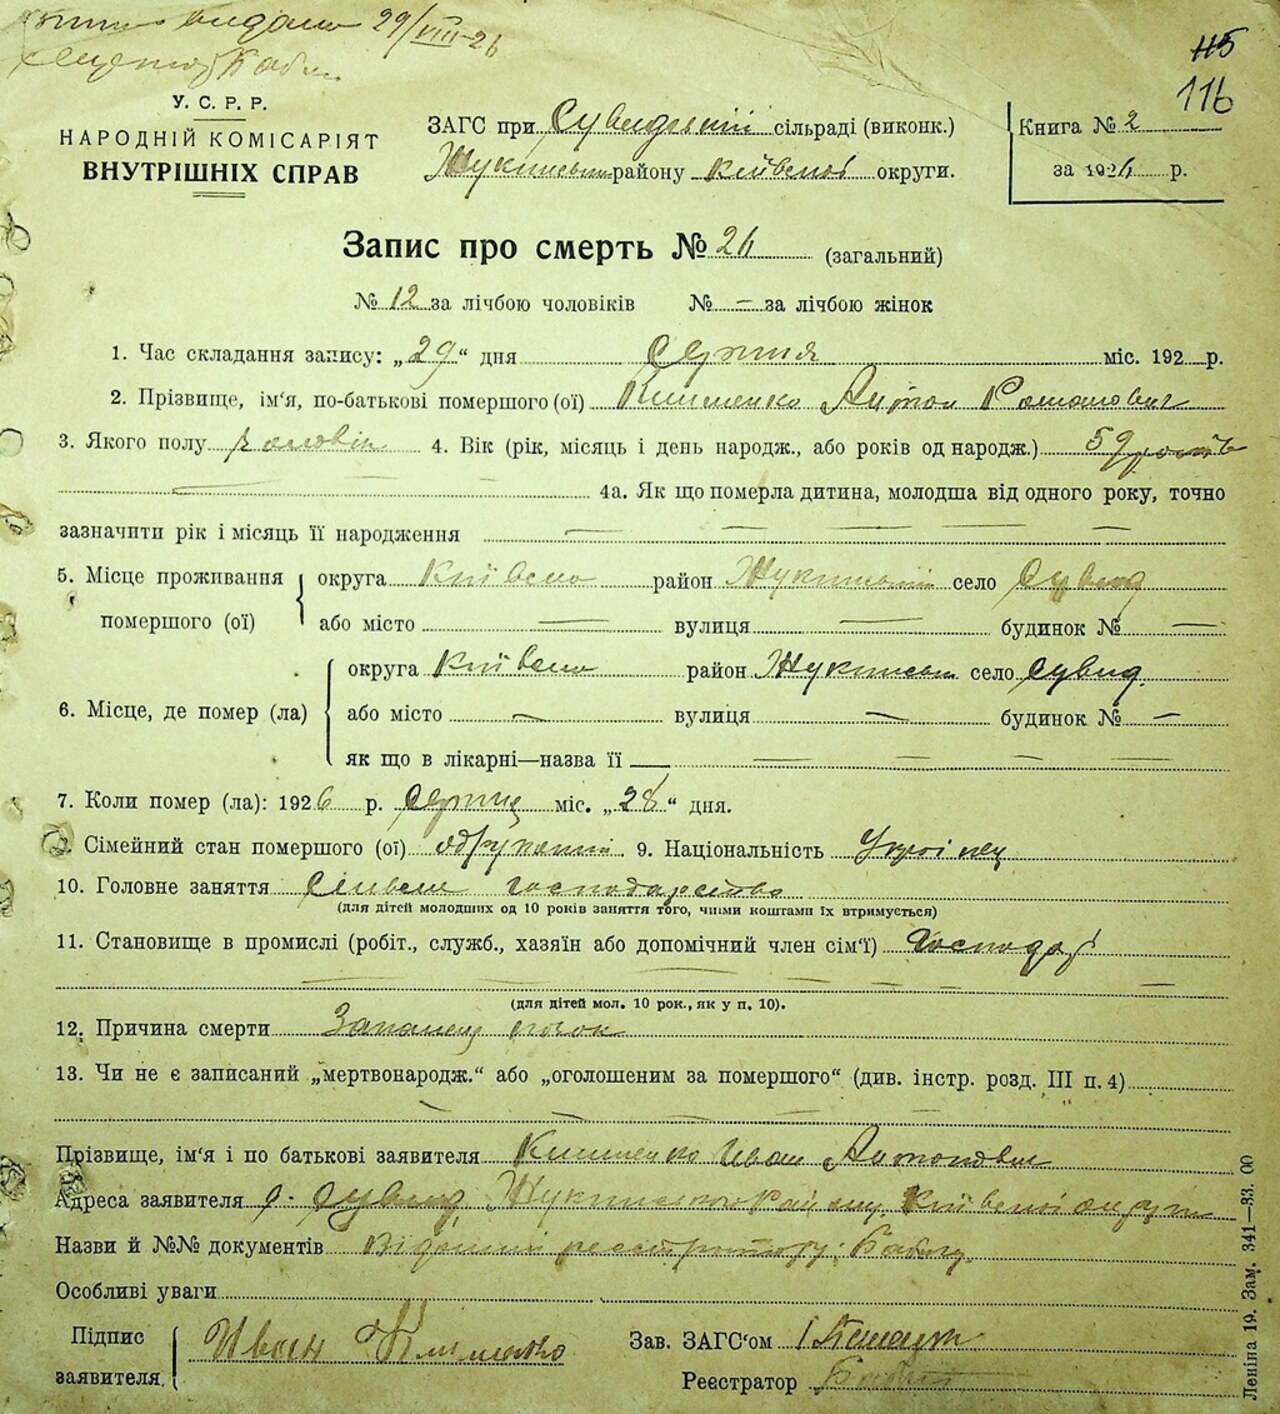 видано 29/VIII-26
115
116
У. С. Р. Р.
НАРОДНІЙ КОМІСАРІЯТ
ВНУТРІШНІХ СПРАВ
ЗАГС при Сувидській сільраді (виконк.)
Жукинськ району Київської округи.
Книга № 2
за 1926 р.
Запис про смерть № 26 (загальний)
№ 12 за лічбою чоловіків № — за лічбою жінок
1. Час складання запису: „29“ дня Серпня міс. 192 р.
2. Прізвище, ім'я, по-батькові помершого (ої) Клименко Антон Романович
3. Якого полу чоловік 4. Вік (рік, місяць і день народж., або років од народж.) 59 років
4а. Як що померла дитина, молодша від одного року, точно
зазначити рік і місяць її народження
5. Місце проживання помершого (ої) округа Київськ район Жукинський село Сувид
або місто — вулиця — будинок № —
6. Місце, де помер (ла) округа Київськ район Жукинськ село Сувид.
або місто — вулиця — будинок № —
як що в лікарні—назва її —
7. Коли помер (ла): 1926 р. Серпня міс. „28“ дня.
8. Сімейний стан помершого (ої) одружений 9. Національність Українец
10. Головне заняття Сільське господарство
(для дітей молодших од 10 років заняття того, чиїми коштами їх втримується)
11. Становище в промислі (робіт., служб., хазяїн або допомічний член сім'ї) Господар
(для дітей мол. 10 рок., як у п. 10).
12. Причина смерти Запалення
13. Чи не є записаний „мертвонародж.“ або „оголошеним за помершого“ (див. інстр. розд. III п. 4)
Прізвище, ім'я і по батькові заявителя Клименко Іван Антонович
Адреса заявителя с. Сувид, Жукинського Району Київської округи
Назви й №№ документів Відомий реєстратору
Особливі уваги
Підпис заявителя. Иван Клименко
Зав. ЗАГС'ом
Реєстратор
Леніна 19. Зам. 341—33. 00